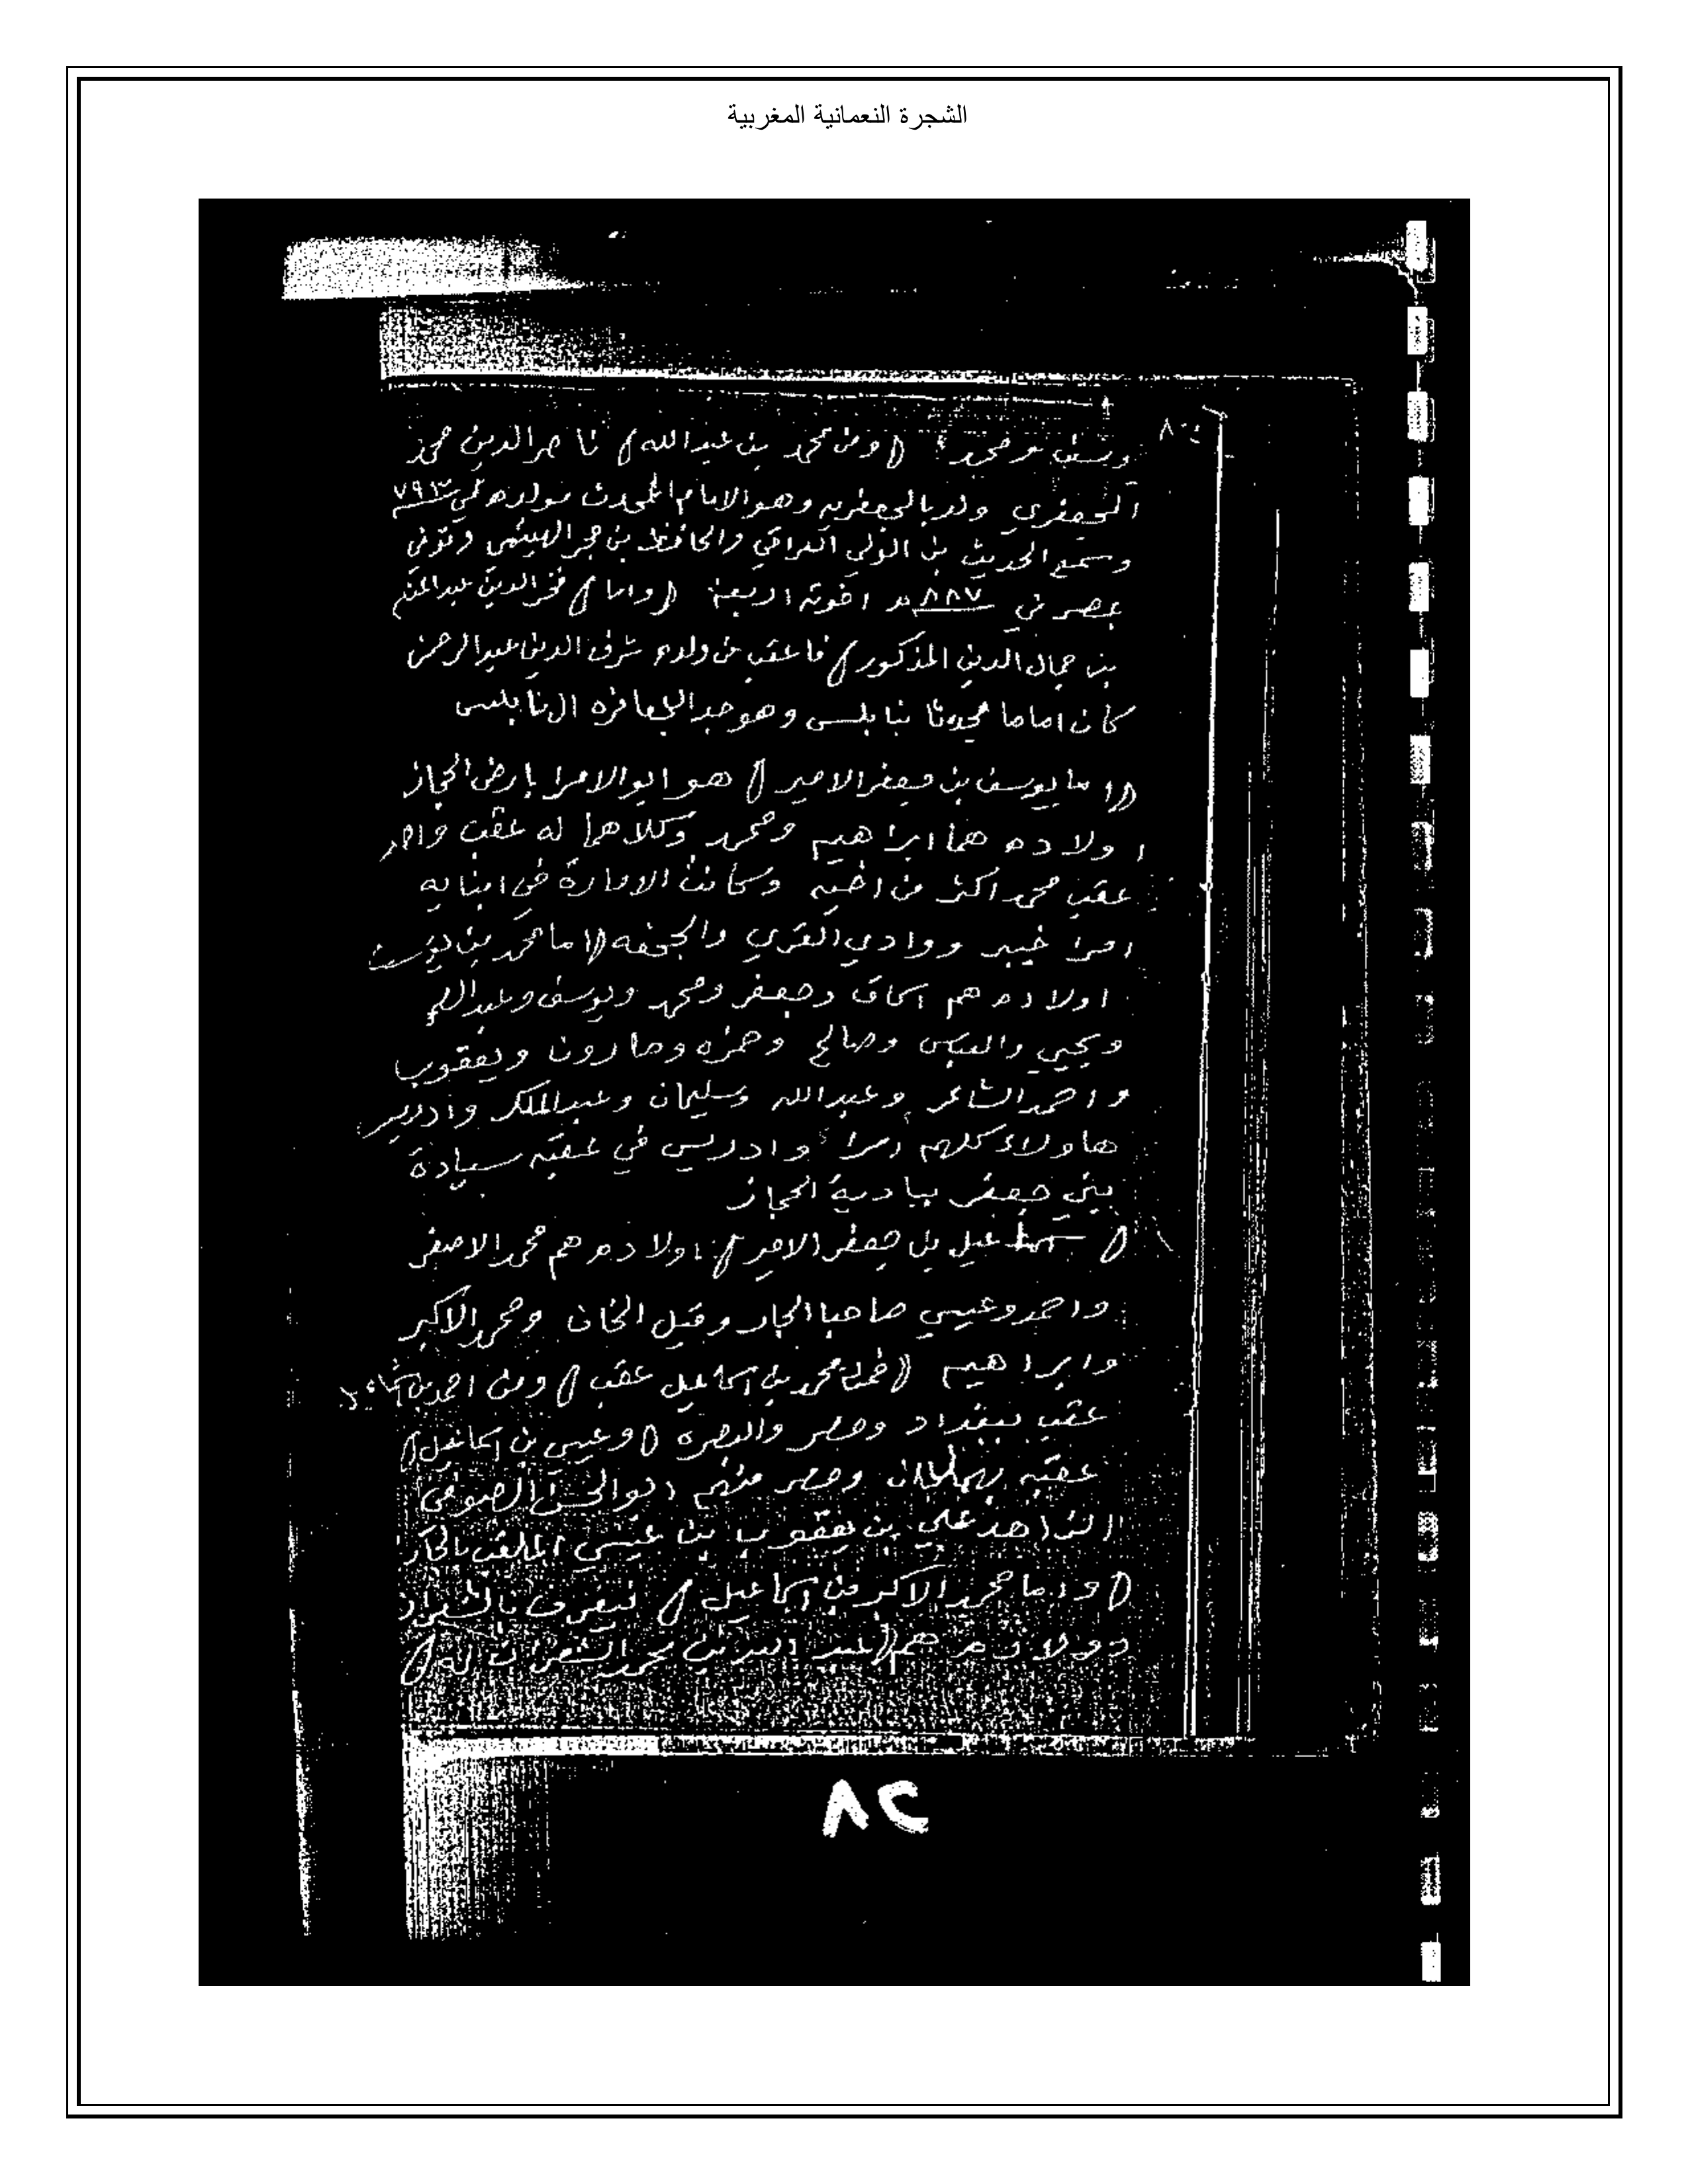 الشجرة النعمانية المغربية
ومحمد (ومن محمد بن عبدالله) ناصر الدين محمد
الجعفري ولد بالجعفريه وهو الامام المحدث مولده في ٧٩٣
وسمع الحديث بن الولي العراقي والحافظ بن حجر الهيثمي وتوفي
بمصر في ٨٨٧ اخوته اربعة (واما) فخر الدين عبد المنعم
بن جمال الدين المذكور) فاعقب من ولده شرف الدين عبد الرحمن
كان اماما محدثا بنابلس وهو جد الجعافره النابلسي
(اما يوسف بن جعفر الامير) هو ابو الامرا بارض الحجاز
اولاده هما ابراهيم ومحمد وكلاهما له عقب واحد
عقب محمد اكثر من اخيه وكانت الامارة في ابنايه
امرا خيبر ووادي القري والجحفه (اما محمد بن يوسف
اولاده هم اسحاق وجعفر ومحمد ويوسف
ويحيي والعباس وصالح وحمزه وهارون ويعقوب
واحمد الشاعر وعبدالله وسليمان وعبدالملك وادريس
هاولاء كلهم امرا وادريس في عقبه سيادة
بني جعفر ببادية الحجاز
بن جعفر الامير) اولاده هم محمد الاصغر
واحمد وعيسي صاحبا الجار وقيل الخان ومحمد الاكبر
وابراهيم (فمن محمد بن اسماعيل عقب) ومن احمد بن
عقب ببغداد ومصر والبصرة (وعيسى بن اسماعيل)
عقبه ومصر منهم ابو الحسن الصوفي
الزاهد علي بن يعقوب بن عيسي الملقب
(واما محمد الاكبر بن اسماعيل)
هم بن محمد له)
٨٢